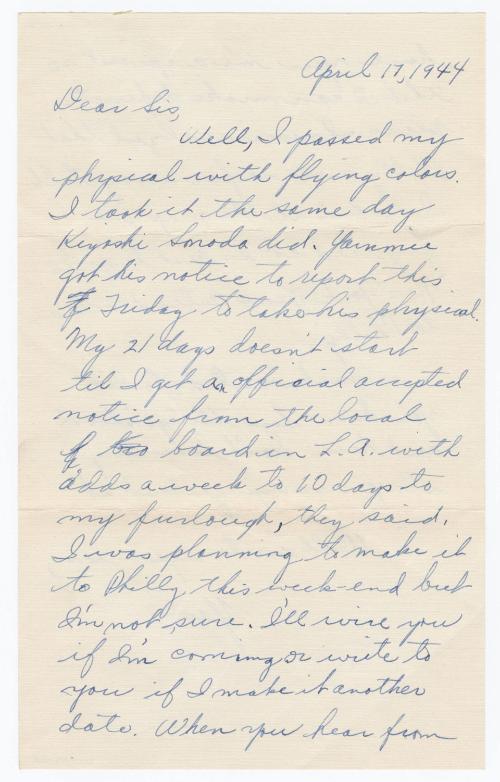 April 17, 1944
Dear Sis,
Well, I passed my
physical with flying colors.
I took it the same day
Kiyoshi Sonoda did. Yammie
got his notice to report this
Friday to take his physical.
My 21 days doesn't start
til I get an official accepted
notice from the local
board in L.A. with
adds a week to 10 days to
my furlough, they said.
I was planning to make it
to Philly this week-end but
I'm not sure. I'll wire you
if I'm coming or write to
you if I make it another
date. When you hear from